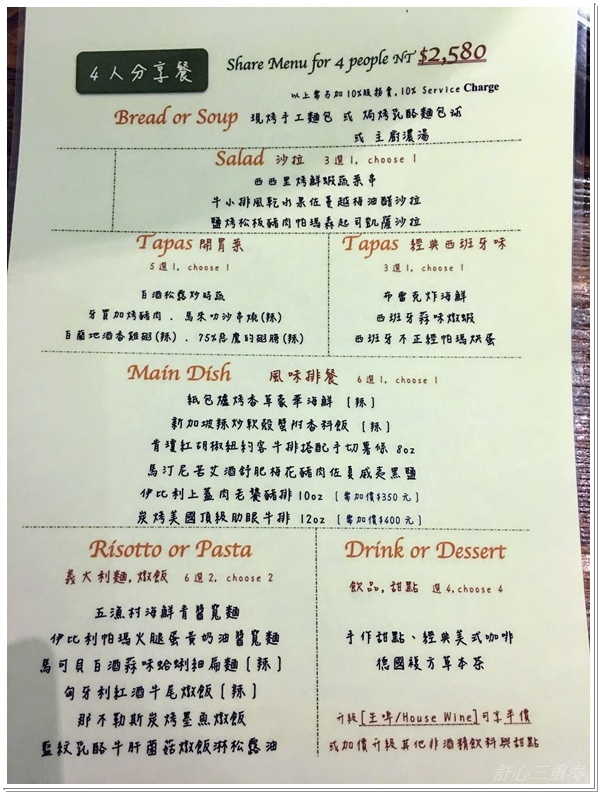 4人分享餐
Share Menu for 4 people NT $2,580
以上需另加10%服務費,10% Service Charge
Bread or Soup 現烤手工麵包 或 焗烤乳酪麵包球
或 主廚濃湯
Salad 沙拉 3選1, choose 1
西西里烤鮮蝦蔬菜串
牛小排風乾水果佐蔓越梅油醋沙拉
鹽烤松板豬肉帕瑪森起司凱薩沙拉
Tapas 開胃菜
5選1, choose 1
白酒松露炒時蔬
牙買加烤豬肉 . 馬來叻沙串燒(辣)
白蘭地酒香雞翅(辣) . 75%惡魔的翅膀(辣)
Tapas 經典西班牙味
3選1, choose 1
布雷克炸海鮮
西班牙蒜味燉蝦
西班牙不正經帕瑪烘蛋
Main Dish 風味排餐 6選1, choose 1
紙包爐烤香草豪華海鮮 [辣]
新加坡辣炒軟殼蟹附香料飯 [辣]
肯瓊紅胡椒紐約客牛排搭配手切薯條 8oz
馬汀尼芒艾酒舒肥梅花豬肉佐夏威夷黑鹽
伊比利上蓋肉老饕豬排 10oz [需加價$350元]
炭烤美國頂級肋眼牛排 12oz [需加價$400元]
Risotto or Pasta
義大利麵,燉飯 6選2, choose 2
五漁村海鮮青醬寬麵
伊比利帕瑪火腿蛋黃奶油醬寬麵
馬可貝白酒蒜味蛤蜊細扁麵[辣]
匈牙利紅酒牛尾燉飯[辣]
那不勒斯炭烤墨魚燉飯
藍紋乳酪牛肝菌菇燉飯淋松露油
Drink or Dessert
飲品,甜點 選4,choose 4
手作甜點、經典美式咖啡
德國複方草本茶
升級[生啤/House Wine]可享半價
或加價升級其他非酒精飲料與甜點
舒心三重奏